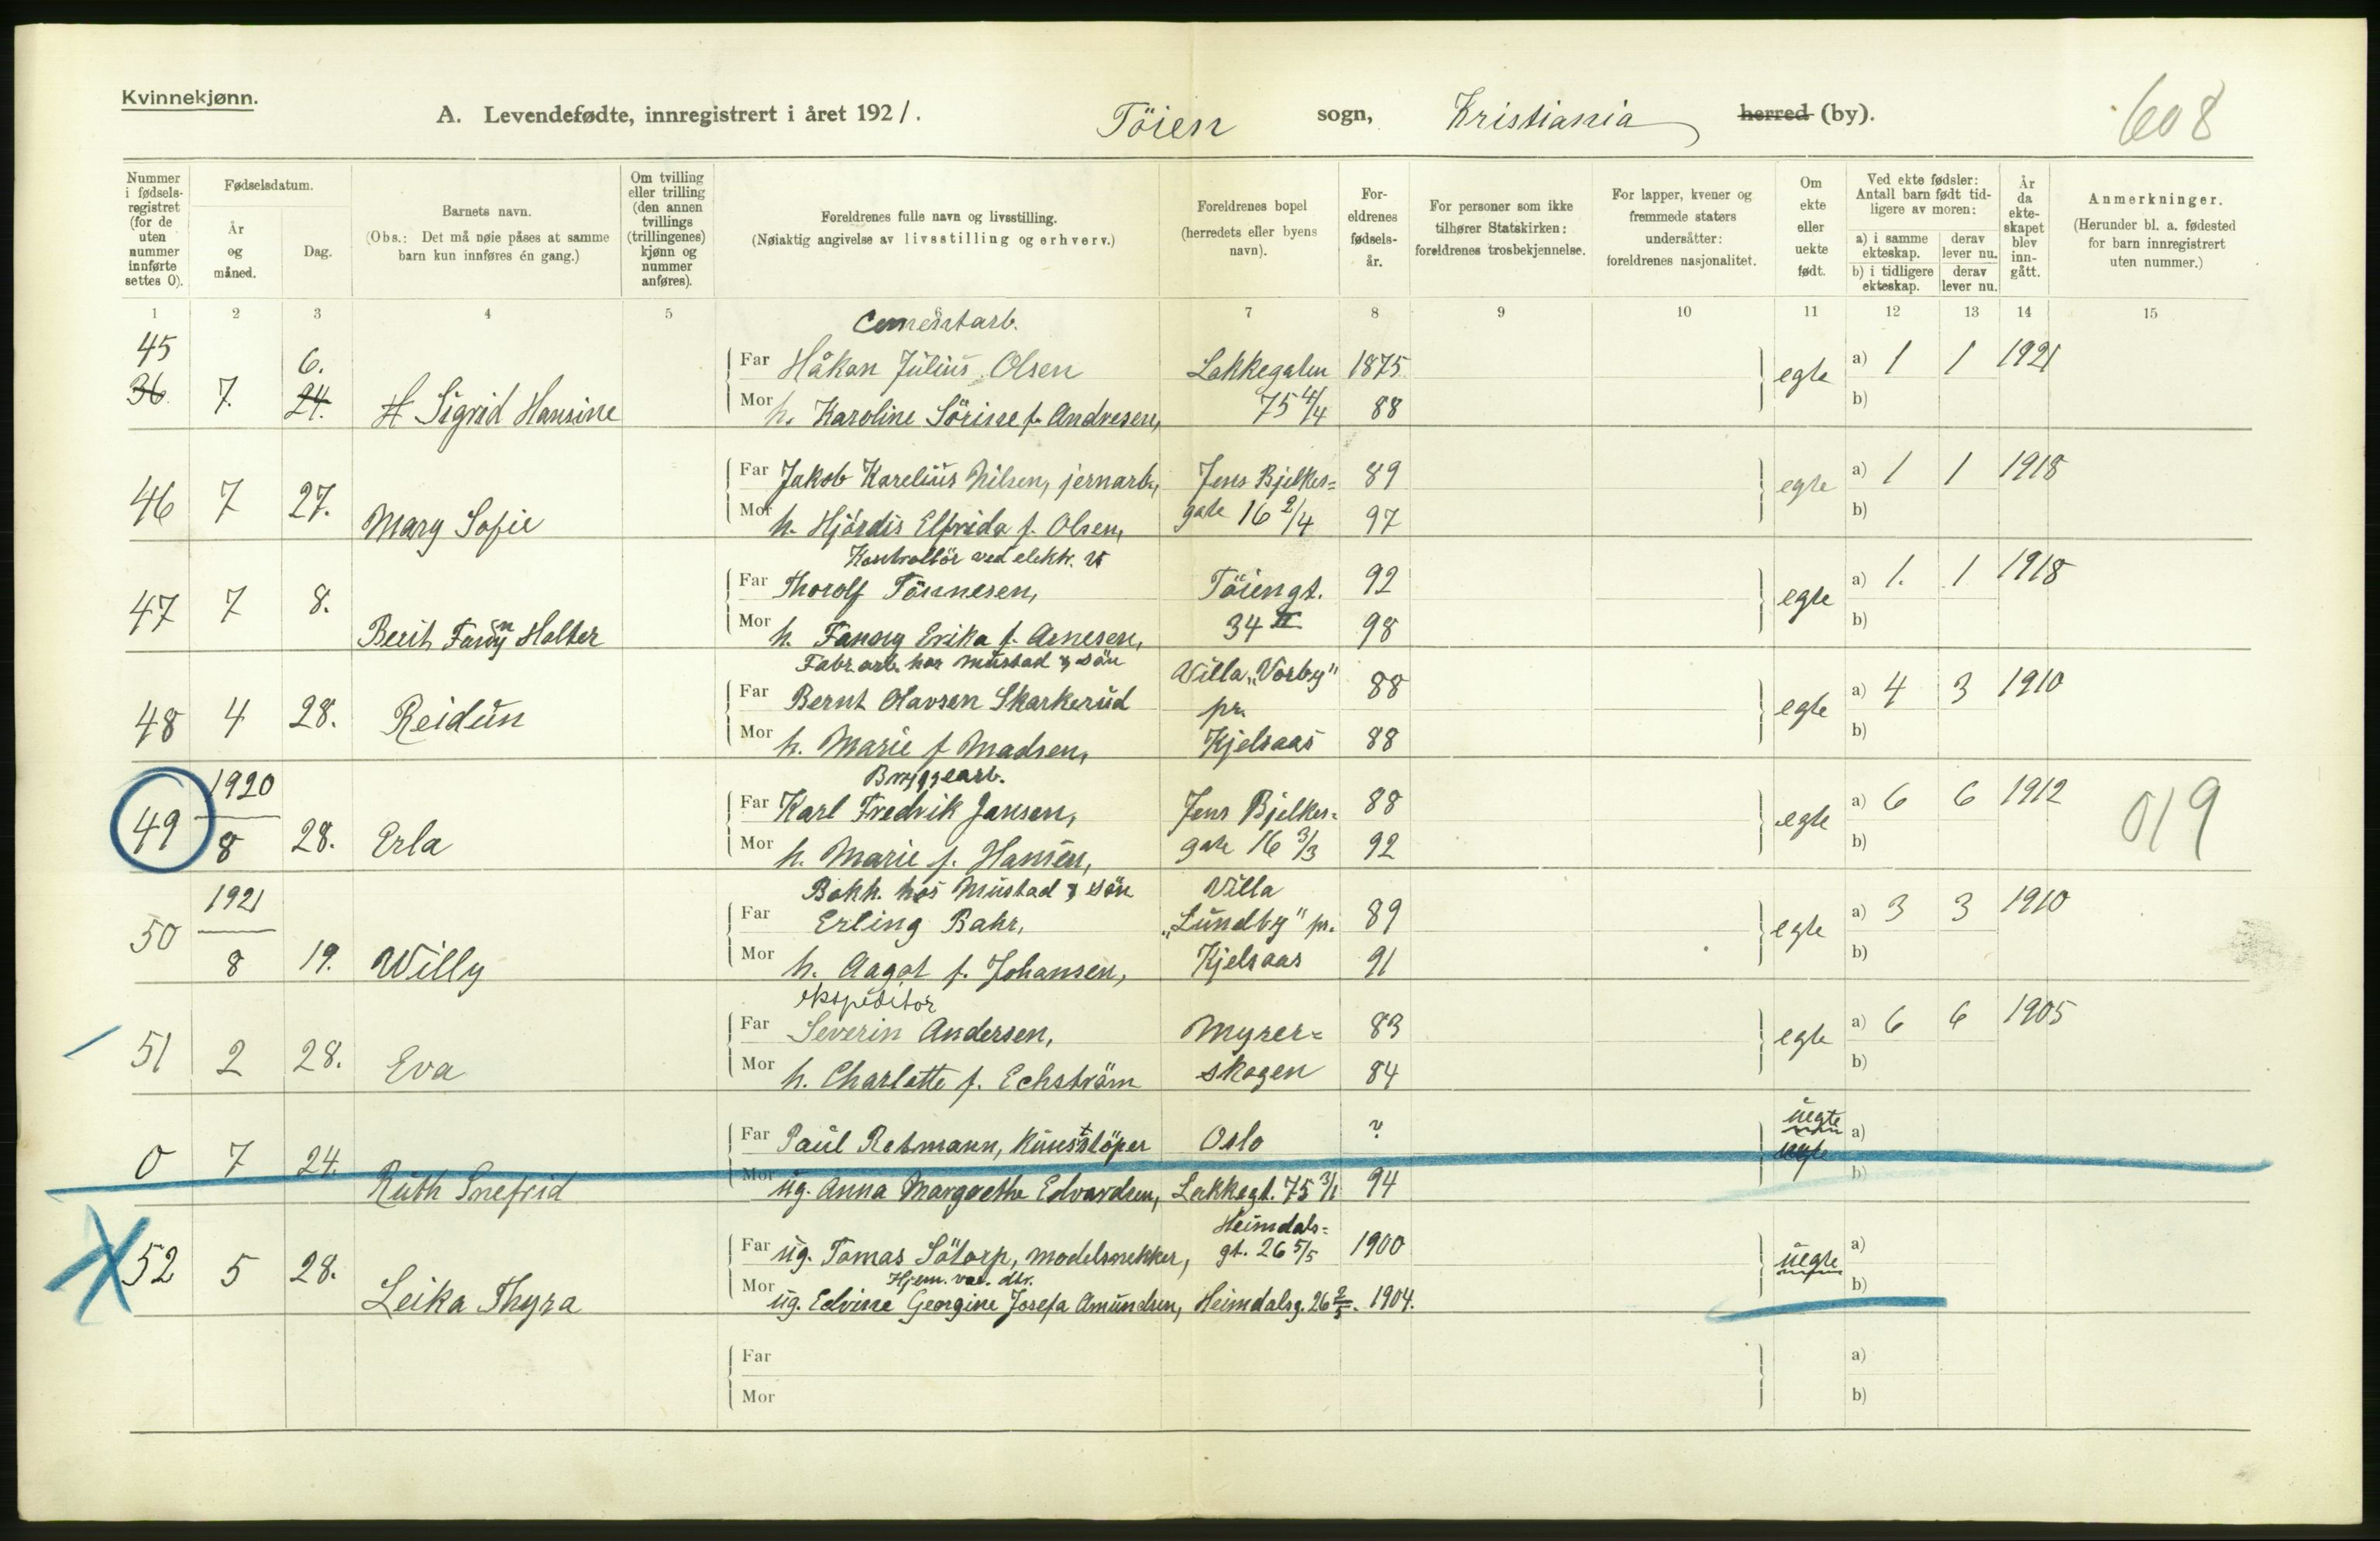 Kvinnekjønn.
A. Levendefødte, innregistrert i året 1921. Töien sogn, Kristiania herred (by). 608
Nummer i fødselsregistret (for de uten nummer innførte settes 0).
Fødselsdatum.
År og måned.
Dag.
Barnets navn.
(Obs.: Det må nøie påses at samme barn kun innføres én gang.)
Om tvilling eller trilling (den annen tvillings (trillingenes) kjønn og nummer anføres).
Foreldrenes fulle navn og livsstilling.
(Nøiaktig angivelse av livsstilling og erhverv.)
Foreldrenes bopel (herredets eller byens navn).
Foreldrenes fødselsår.
For personer som ikke tilhører Statskirken: foreldrenes trosbekjennelse.
For lapper, kvener og fremmede staters undersåtter: foreldrenes nasjonalitet.
Om ekte eller uekte født.
Ved ekte fødsler: Antall barn født tidligere av moren:
a) i samme ekteskap. derav lever nu.
b) i tidligere ekteskap. derav lever nu.
År da ekteskapet blev inngått.
Anmerkninger.
(Herunder bl. a. fødested for barn innregistrert uten nummer.)
1 2 3 4 5 7 8 9 10 11 12 13 14 15
Cementarb.
45 6. Far Håkan Julius Olsen Lakkegaten 1875 egte a) 1 1 1921
36 7. 24. H Sigrid Hansine Mor h. Karoline Sörine f. Andresen, 75 4/4 88 b)
Far Jakob Karelius Nilsen, jernarb., Jens Bjelkes= 89 egte a) 1 1 1918
46 7 27. Mary Sofie Mor h. Hjördis Elfrida f. Olsen, gate 16 2/4 97 b)
Kontrollör ved elektr. v
Far Thorolf Tönnesen, Töiengt. 92 egte a) 1. 1 1918
47 7 8. Berit Fanny Holter Mor h. Fanny Erika f. Arnesen, 34 II 98 b)
Fabr. arb. hos Mustad & Sön Villa „Vorby"
Far Bernt Olavsen Skarkerud pr. 88 egte a) 4 3 1910
48 4 28. Reidun Mor h. Marie f Madsen, Kjelsaas 88 b)
1920 Bryggearb.
Far Karl Fredrik Jansen, Jens Bjelkes= 88 egte a) 6 6 1912 019
49 8 28. Erla Mor h. Marie f. Hansen, gate 16 3/3 92 b)
1921 Bokh. hos Mustad & Sön Villa
Far Erling Bahr, „Lundby" pr. 89 egte a) 3 3 1910
50 8 19. Willy Mor h. Aagot f. Johansen, Kjelsaas 91 b)
ekspeditor
Far Severin Andersen, Myrer= 83 egte a) 6 6 1905
51 2 28. Eva Mor h. Charlotte f. Echström skogen 84 b)
Far Paul Rotmann, Kunstlöper Oslo ? uegte a)
0 7 24. Ruth Snefrid Mor ug. Anna Margrethe Edvardsen, Lakkegt. 75 3/1 94 b)
Heimdals=
Far ug. Tomas Sätorp, modelsnekker, gt. 26 5/5 1900 uegte a)
Hjem. vær. dtr.
52 5 28. Leika Thyra Mor ug. Edvine Georgine Josefa Amundsen, Heimdalsg. 26 2/5. 1904. b)
Far a)
Mor b)